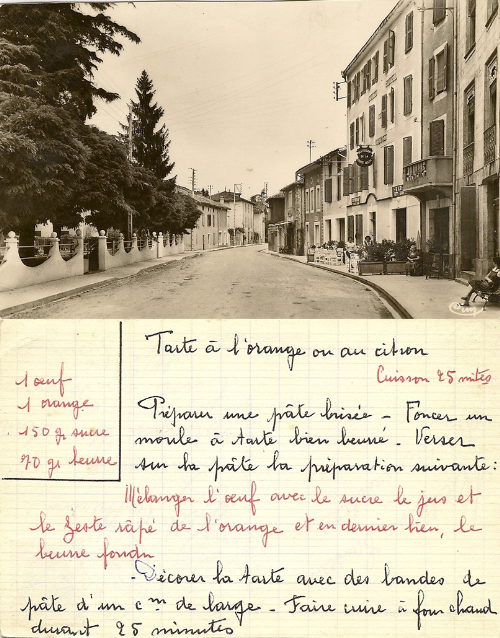 Tarte à l'orange ou au citron
Cuisson 25 mites
1 œuf
1 orange
150 gr sucre
70 gr beurre
Préparer une pâte brisée - Foncer un
moule à tarte bien beurré - Verser
sur la pâte la préparation suivante :
Mélanger l'œuf avec le sucre le jus et
le zeste râpé de l'orange et en dernier lieu, le
beurre fondu
- Décorer la tarte avec des bandes de
pâte d'un cm de large - Faire cuire à four chaud
durant 25 minutes